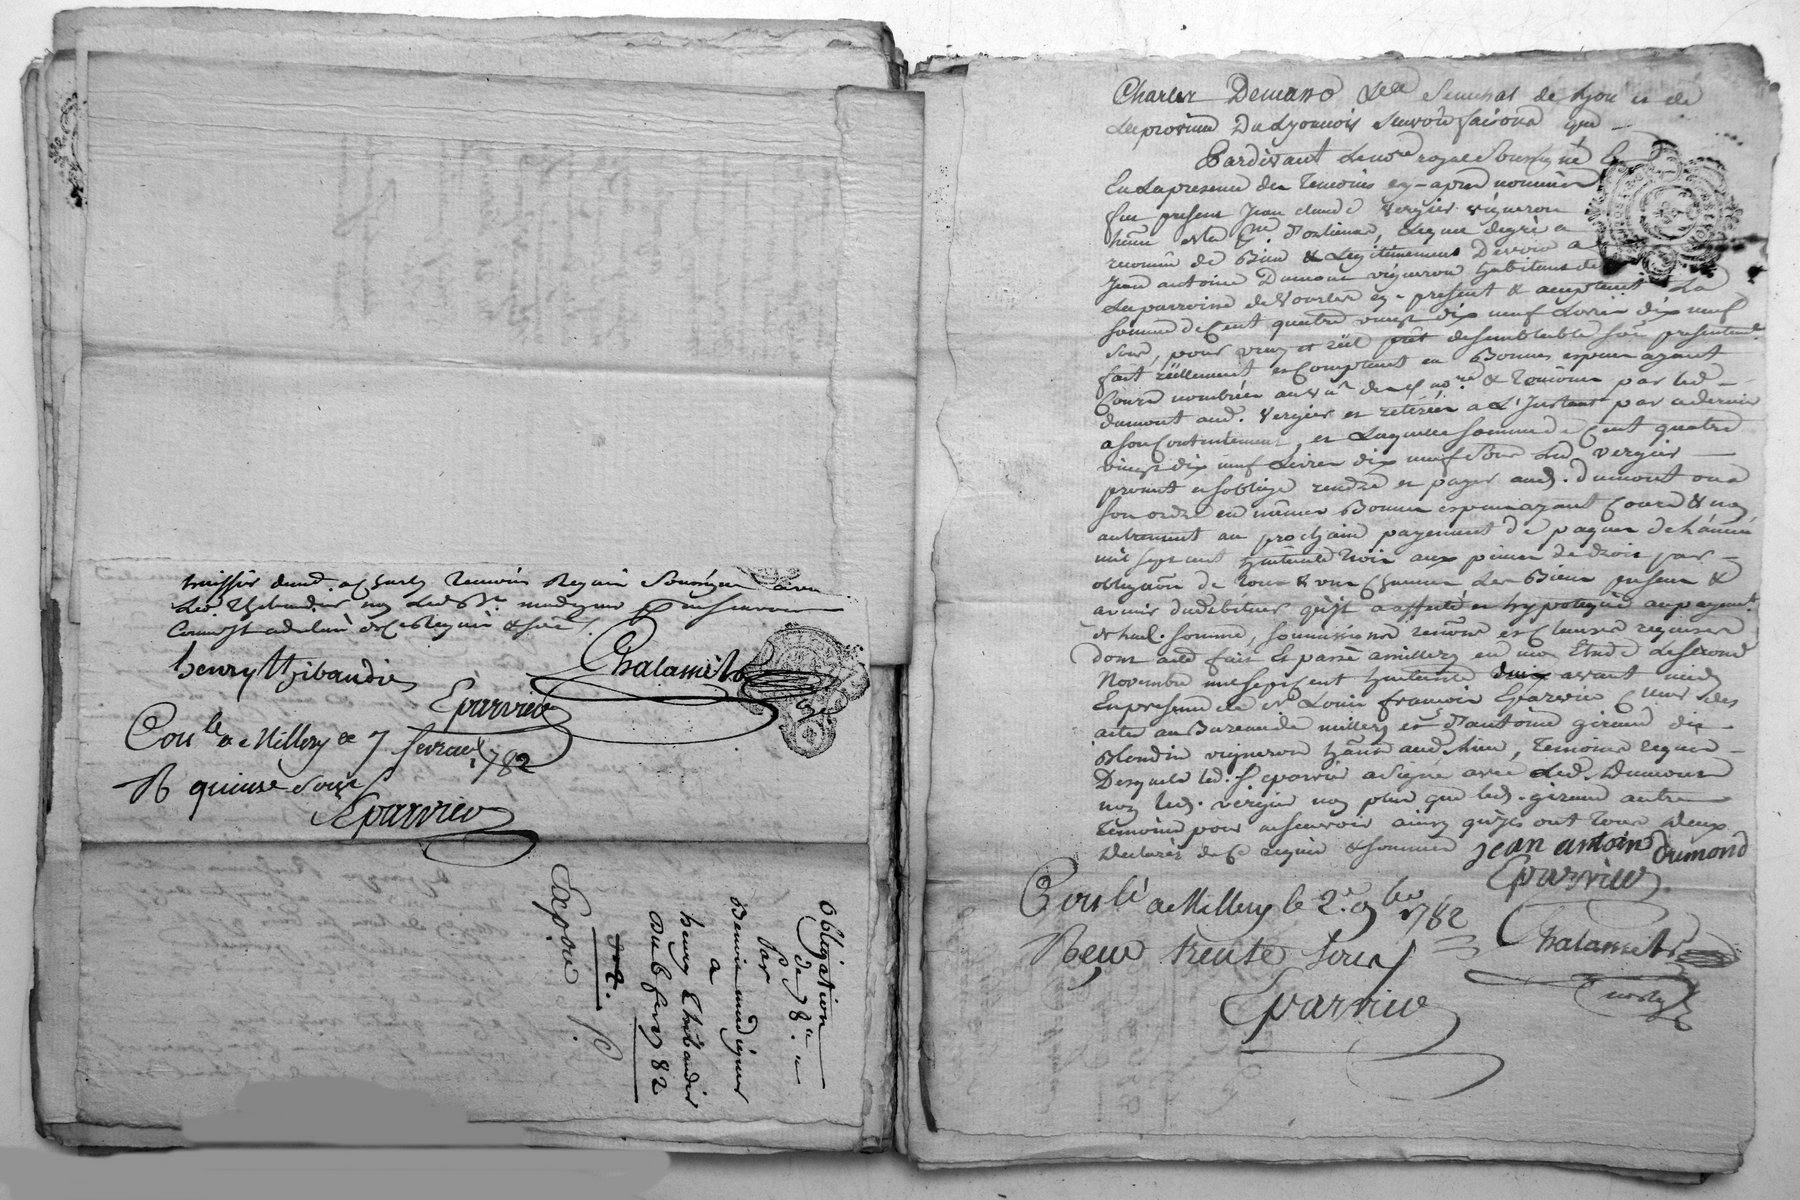 huissier demt. a Charly temoins Requis Soussignés avec
Led. thibaudier non Led. Be. mudiguer pour ne sçavoir
Comme il a declaré de ce Requis & Somé
henry thibaudier
Chalamel
Eparvier
Conlé a Millery Le 7 fevrier 1782
R quinze sous
Eparvier
Obligation
de 78 #
Par
Benoit mudiguer
a
henry thibaudier
Du 6 fevr 82
Expdié
Charles Demasso Sénéchal de Lyon et de
La province Du Lyonnois sçavoir faisons que
Pardevant Le nore royal Soussigné &
En La presence des Temoins cy-apres nommés
fut present Jean claude Vergier vigneron
Lequel de gré a
reconnu de Bien & Légitimement Devoir a
Jean antoine Dumont vigneron habitant de
La parroisse de Vourles cy-present & acceptant La
somme de Cent quatre vingt dix neuf Livres dix neuf
sous, pour vray et réel prêt de semblable somme presentement
fait réellement et Comptant en Bonnes especes ayant
Cours nombrées au vû des nore & temoins par led.
dumont aud. Vergier et retirées a L'Instant par ce dernier
a son Contentement, et Laquelle somme de Cent quatre
vingt dix neuf Livres dix neuf sous Led. Vergier
promet et s'oblige rendre et payer aud. dumont ou a
son ordre en mêmes Bonnes especes ayant Cours & non
autrement au prochain payement de paques de L'année
mil sept cent huitante trois aux peines de droit par
obligaôn de tous & un Chacun Les Biens presens &
avenir dud. débiteur qu'il a affecté et hypotequé au payemt.
de lad. somme, soumissions renonc. et Clauses requises
dont acte fait Et passé a millery en mon Etude Le second
Novembre mil sept cent huitante deux avant midy
En presence de Me. Louis françois Eparvier Cteur des
actes au Bureau de millery et d'antoine giraud dit
Blondin vigneron hânt aud. Lieu, temoins requis
Desquels led. Sr. Eparvier a signé avec Led. Dumont
non led. Vergier non plus que led. giraud autre
temoins pour ne sçavoir ainsy qu'ils ont tous deux
declarés de Ce requis & sommés jean antoine dumond
Eparvier
Conlé a Millery le 2. 9bre 1782
Chalamel
Reçu trente sous
Eparvier